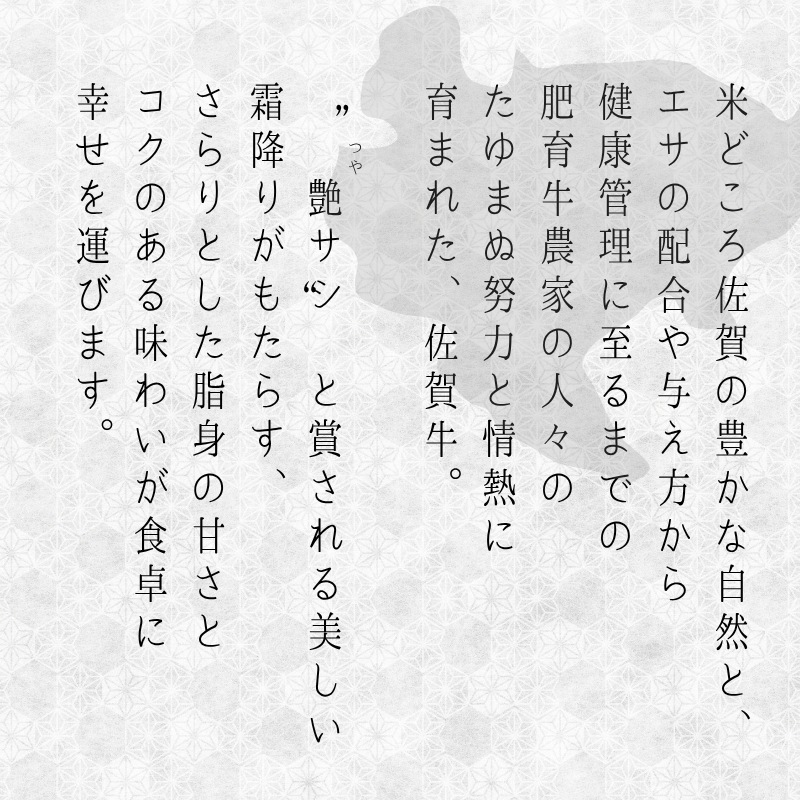 米どころ佐賀の豊かな自然と、
エサの配合や与え方から
健康管理に至るまでの
肥育牛農家の人々の
たゆまぬ努力と情熱に
育まれた、佐賀牛。
つや
”艶サシ“と賞される美しい
霜降りがもたらす、
さらりとした脂身の甘さと
コクのある味わいが食卓に
幸せを運びます。